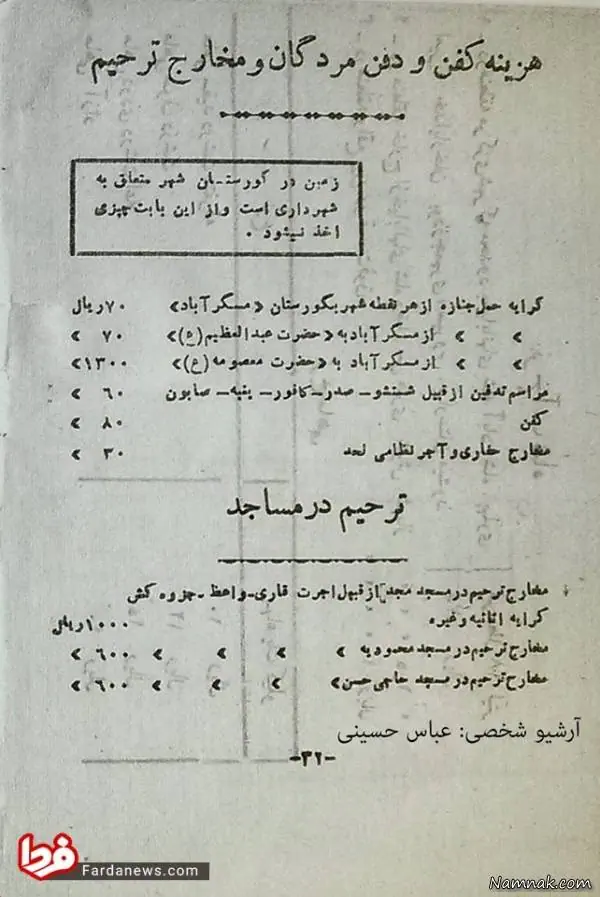 هزینه کفن و دفن مردگان و مخارج ترحیم
زمین در گورستان شهر متعلق به
شهرداری است و از این بابت چیزی
اخذ نمیشود .
کرایه حمل جنازه از هر نقطه شهر بگورستان «مسگر آباد» ۷۰ ریال
» » از مسگر آباد به «حضرت عبدالعظیم (ع)» ۷۰ »
» » از مسگر آباد به «حضرت معصومه (ع)» ۱۳۰۰ »
مراسم تدفین از قبیل شستشو ـ صدر ـ کافور ـ پنبه ـ صابون ۶۰ »
کفن ۸۰ »
مخارج حفاری و آجر نظامی لحد ۳۰ »
ترحیم در مساجد
مخارج ترحیم در مسجد مجد از قبیل اجرت قاری ـ واعظ ـ جزوه کش
کرایه اثاثیه و غیره ۱۰۰۰ ریال
مخارج ترحیم در مسجد محمودیه » » » » ۶۰۰ »
مخارج ترحیم در مسجد حاجی حسن » » » » ۶۰۰ »
آرشیو شخصی: عباس حسینی
-۳۲-
فردا
Fardanews.com
Namnak.com